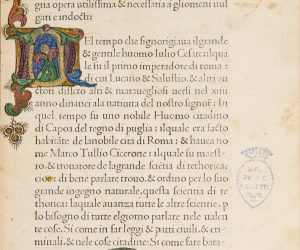 gna opera utilissima & necessaria a gliomeni nul
gari e indocti:
NEl tempo che signorigiaua ilgrande
& gentile huomo Iulio Cesare: ilqua
le fu il primo imperadore di roma:
di cui Lucano & Salustio, & altri au
tori dissero alti & marauegliosi uersi nel xvi
anno dinanci ala natiuita del nostro signor: In
quel tempo fu uno nobile Huomo citadino
di Capoa del regno di puglia: ilquale era facto
habitãte de lanobile cita di Roma: & hauea no
me Marco Tullio Cicerone: ilquale su maest
ro, & trouatore de lagrande sciẽtia di rethori
ca, cioe: di bene parlare trouo, & ordino per lo suo
grande ingegno naturale, questa scientia di re
thorica: laquale auanza tutte le altre scientie, p
lo bisogno di tutte elgiorno parlare nele ualen
te cose. Si come in far leggi & puti ciuili, & cri
minali, & nele cose citadine: Si come fare bata